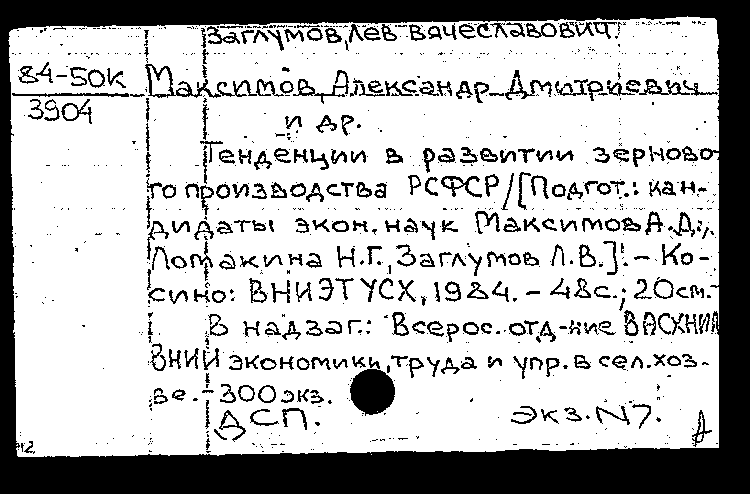 Заглумов, Лев Вячеславович.
84-50К
3904
Максимов, Александр Дмитриевич
и др.
Тенденции в развитии зерново-
го производства РСФСР/[Подгот.: кан-
дидаты экон. наук Максимов А.Д.,
Ломакина Н.Г., Заглумов Л.В.]. - Ко-
сино: ВНИЭТУСХ, 1984. - 48с.; 20см.-
В надзаг.: Всерос. отд-ние ВАСХНИЛ
ВНИИ экономики, труда и упр. в сел. хоз-
ве. - 300 экз.
ДСП. Экз. N7.